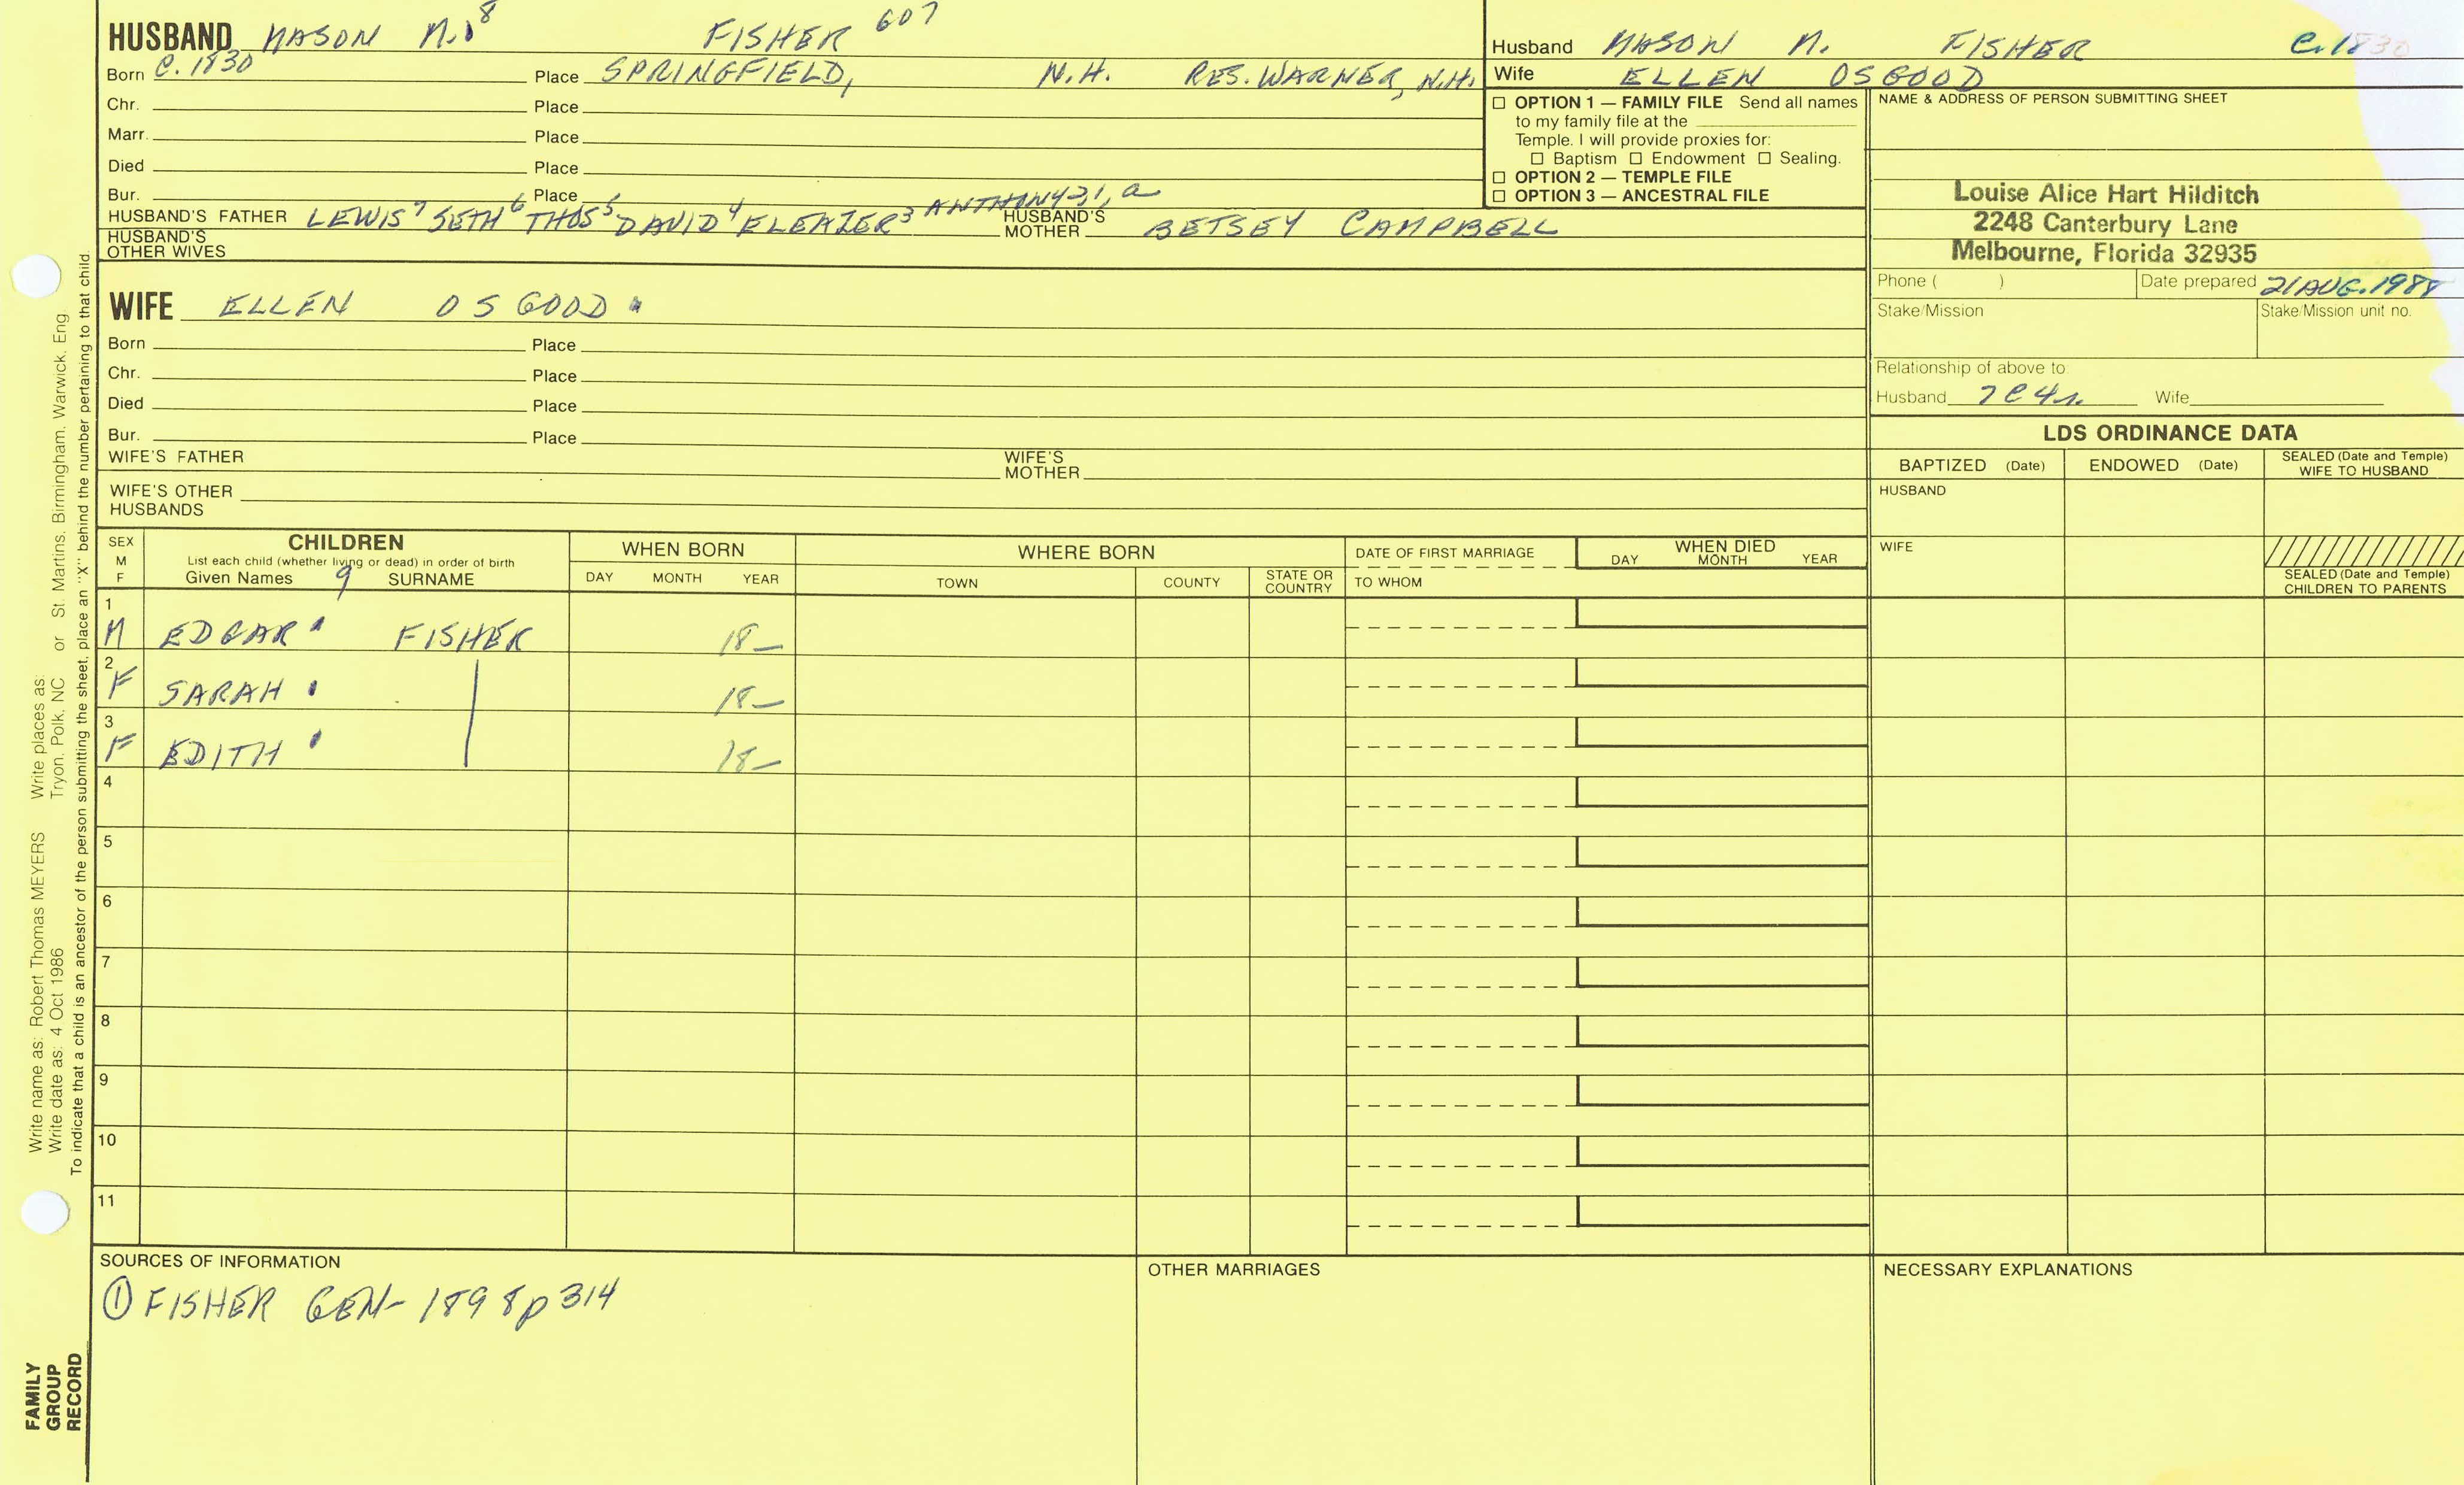 HUSBAND MASON M. 8 FISHER 607
Born C. 1830 Place SPRINGFIELD, N.H. RES. WARNER, N.H.
Chr. Place
Marr. Place
Died Place
Bur. Place
HUSBAND'S FATHER LEWIS 7 SETH 6 THOS 5 DAVID 4 ELEAZER 3 ANTHONY 2, 1, a HUSBAND'S MOTHER BETSEY CAMPBELL
HUSBAND'S OTHER WIVES
WIFE ELLEN OSGOOD
Born Place
Chr. Place
Died Place
Bur. Place
WIFE'S FATHER WIFE'S MOTHER
WIFE'S OTHER HUSBANDS
Husband MASON M. FISHER C. 1830
Wife ELLEN OSGOOD
☐ OPTION 1 — FAMILY FILE Send all names
to my family file at the
Temple. I will provide proxies for:
☐ Baptism ☐ Endowment ☐ Sealing.
☐ OPTION 2 — TEMPLE FILE
☐ OPTION 3 — ANCESTRAL FILE
NAME & ADDRESS OF PERSON SUBMITTING SHEET
Louise Alice Hart Hilditch
2248 Canterbury Lane
Melbourne, Florida 32935
Phone ( ) Date prepared 21 AUG. 1988
Stake/Mission Stake/Mission unit no.
Relationship of above to:
Husband 7C4r. Wife
LDS ORDINANCE DATA
BAPTIZED (Date) ENDOWED (Date) SEALED (Date and Temple) WIFE TO HUSBAND
HUSBAND
WIFE
SEALED (Date and Temple) CHILDREN TO PARENTS
SEX M F
CHILDREN
List each child (whether living or dead) in order of birth
Given Names 9 SURNAME
WHEN BORN
DAY MONTH YEAR
WHERE BORN
TOWN COUNTY STATE OR COUNTRY
DATE OF FIRST MARRIAGE
TO WHOM
WHEN DIED
DAY MONTH YEAR
1 M EDGAR FISHER 18—
2 F SARAH 18—
3 F EDITH 18—
4
5
6
7
8
9
10
11
SOURCES OF INFORMATION
① FISHER GEN- 1898 p 314
OTHER MARRIAGES
NECESSARY EXPLANATIONS
Write name as: Robert Thomas MEYERS Write places as:
Write date as: 4 Oct 1986 Tryon, Polk, NC or St. Martins, Birmingham, Warwick, Eng.
To indicate that a child is an ancestor of the person submitting the sheet, place an "X" behind the number pertaining to that child.
FAMILY
GROUP
RECORD